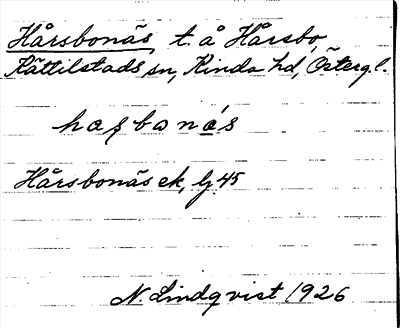 Hårsbonäs, t. å Hårsbo,
Kättilstads sn, Kinda hd, Östergl.
haʂbonás
Hårsbonäs ek, lj 45
N. Lindqvist 1926